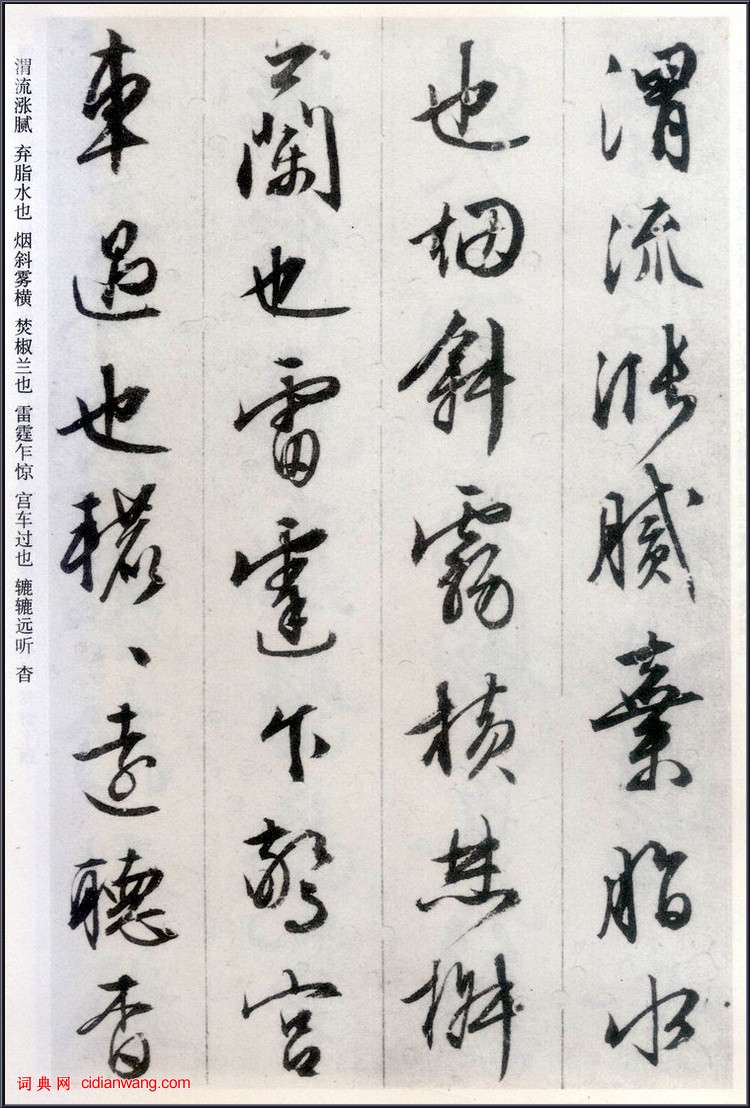 渭流漲膩棄脂水
也烟斜霧橫焚椒
蘭也雷霆乍驚宮
車過也轆〻遠聽杳
渭流涨腻 弃脂水也 烟斜雾横 焚椒兰也 雷霆乍惊 宫车过也 辘辘远听 杳
词典网 cidianwang.com